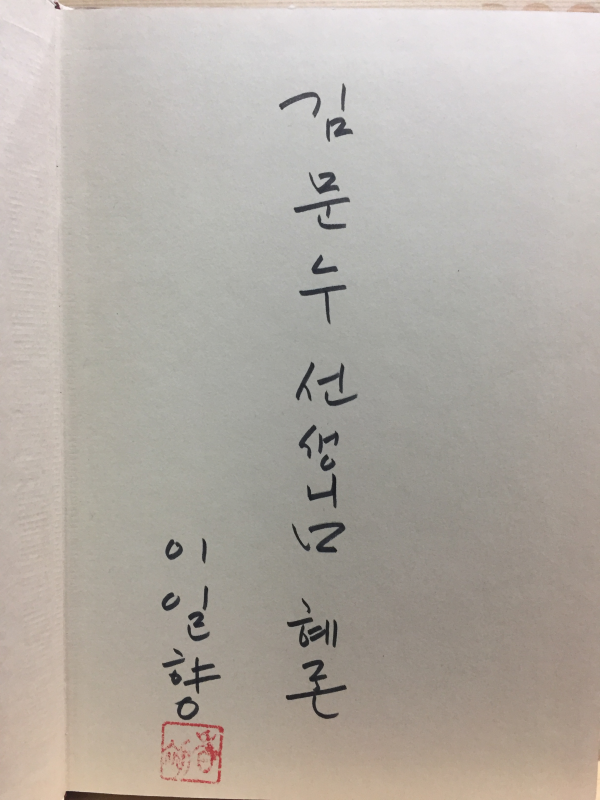 김문수 선생님 혜존
이일향